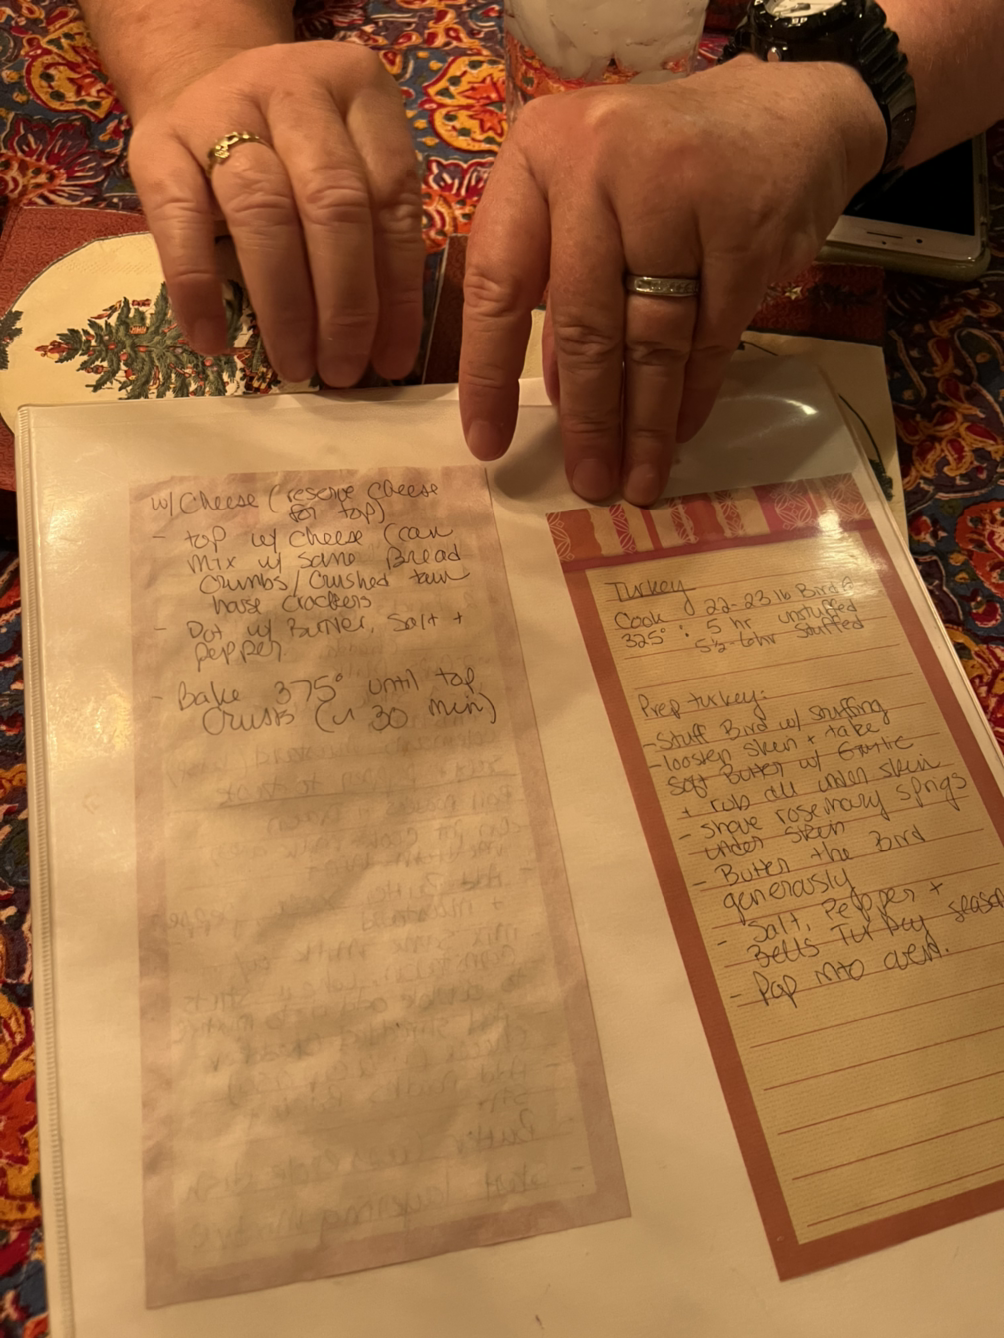 w/ Cheese (reserve cheese
for top)
- top w/ cheese (can
mix w/ some Bread
Crumbs/Crushed town
house crackers
- Dot w/ Butter, Salt +
pepper
- Bake 375° until top
Crusts (~ 30 min)
Turkey
Cook 22-23 lb Bird @
325° : 5 hr unstuffed
5½-6hr stuffed
Prep turkey:
- Stuff Bird w/ stuffing
- loosen skin + take
soft Butter w/
+ rub all under skin
- shove rosemary sprigs
under skin
- Butter the Bird
generously
- Salt, Pepper +
Bells Turkey season
- Pop into oven.